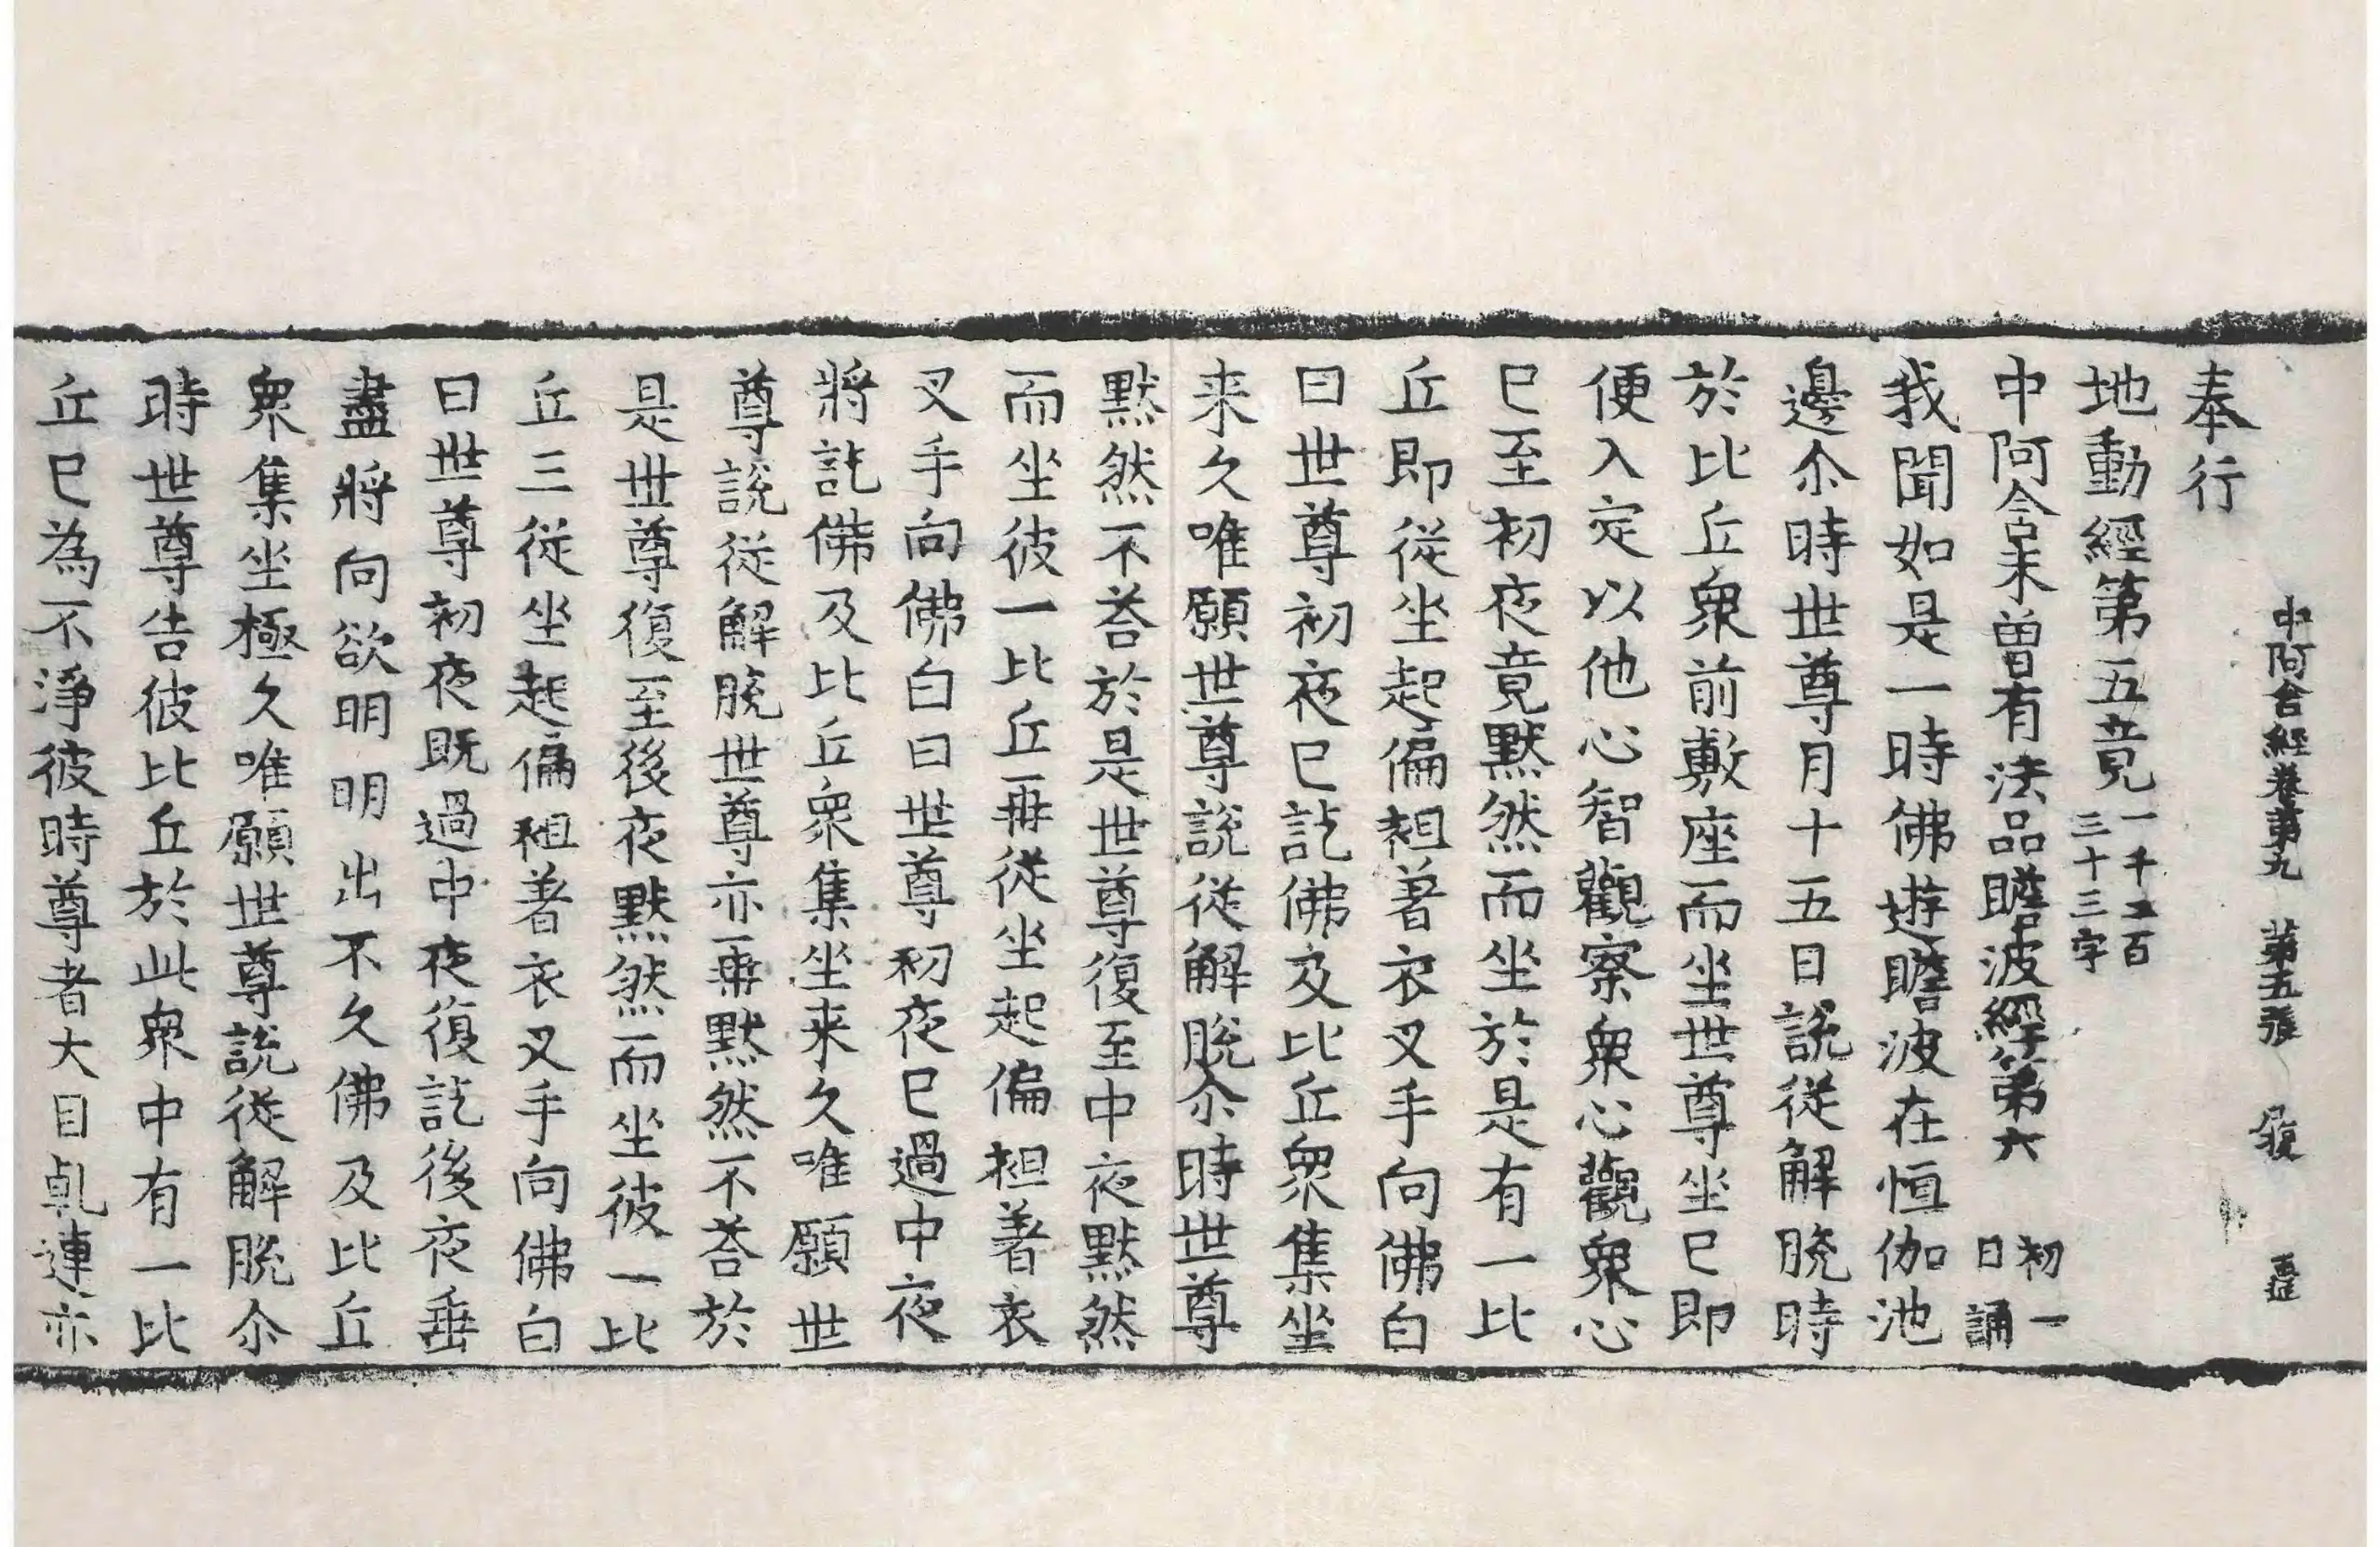 中阿含經卷第九 第五張 履
奉行
地動經第五竟一千二百三十三字
中阿含未曾有法品瞻波經第六 初一日誦
我聞如是一時佛遊瞻波在恒伽池
邊尒時世尊月十五日說從解脫時
於比丘衆前敷座而坐世尊坐已即
便入定以他心智觀察衆心觀衆心
已至初夜竟默然而坐於是有一比
丘即從坐起偏袒著衣叉手向佛白
曰世尊初夜已訖佛及比丘衆集坐
来久唯願世尊說從解脫尒時世尊
默然不荅於是世尊復至中夜默然
而坐彼一比丘再從坐起偏袒著衣
叉手向佛白曰世尊初夜已過中夜
將訖佛及比丘衆集坐来久唯願世
尊說從解脫世尊亦再默然不荅於
是世尊復至後夜默然而坐彼一比
丘三從坐起偏袒著衣叉手向佛白
曰世尊初夜既過中夜復訖後夜垂
盡將向欲明明出不久佛及比丘
衆集坐極久唯願世尊說從解脫尒
時世尊告彼比丘於此衆中有一比
丘已為不淨彼時尊者大目乹連亦